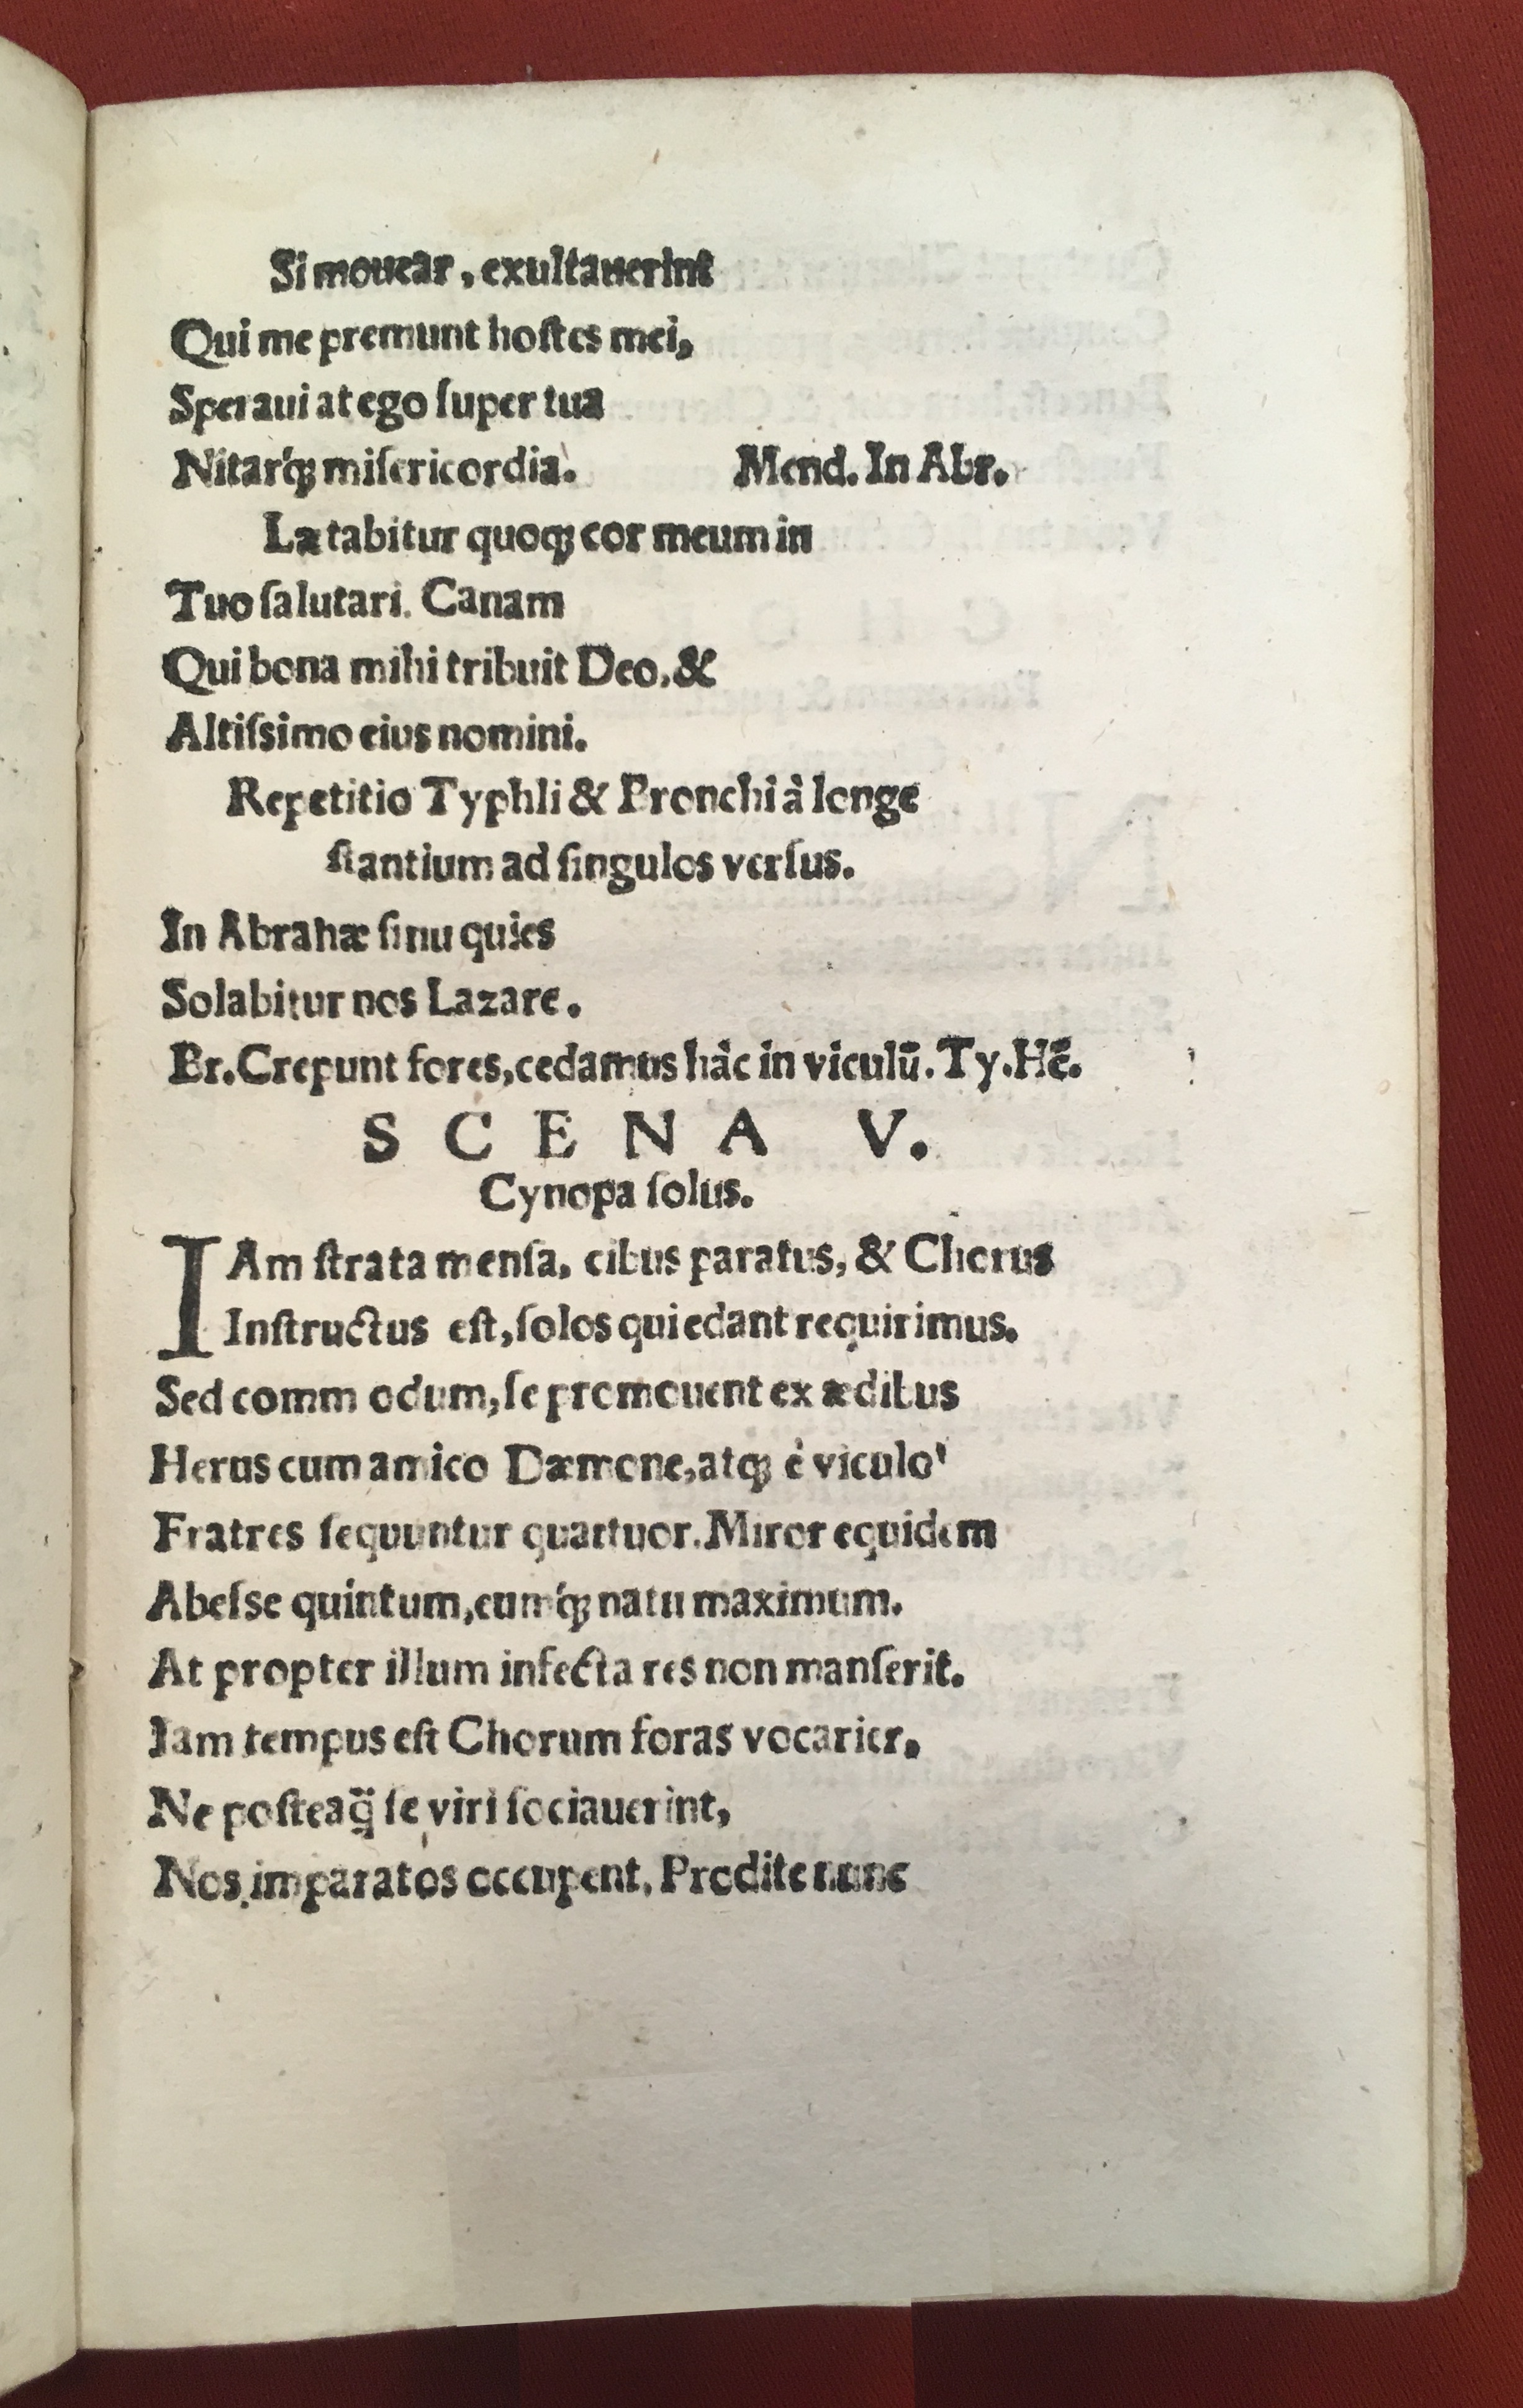 Si mouear, exultauerint
Qui me premunt hoſtes mei,
Speraui at ego ſuper tua
Nitarq́ꝫ miſericordia. Mend. In Abr.
Lætabitur quoqꝫ cor meum in
Tuo ſalutari. Canam
Qui bona mihi tribuit Deo, &
Altiſsimo eius nomini.
Repetitio Typhli & Bronchi à longe
ſtantium ad ſingulos verſus.
In Abrahæ ſinu quies
Solabitur nos Lazare.
Br. Crepunt fores, cedamus hâc in viculū. Ty. Hē.
SCENA V.
Cynopa ſolus.
IAm ſtrata menſa, cibus paratus, & Chorus
Inſtructus eſt, ſolos qui edant requirimus.
Sed comm odum, ſe promouent ex ædibus
Herus cum amico Dæmone, atqꝫ è viculo
Fratres ſequuntur quattuor. Miror equidem
Abeſse quintum, eumq́ꝫ natu maximum.
At propter illum infecta res non manſerit.
Iam tempus eſt Chorum foras vocarier,
Ne poſteaq̈ ſe viri ſociauerint,
Nos imparatos occupent. Prodite nunc